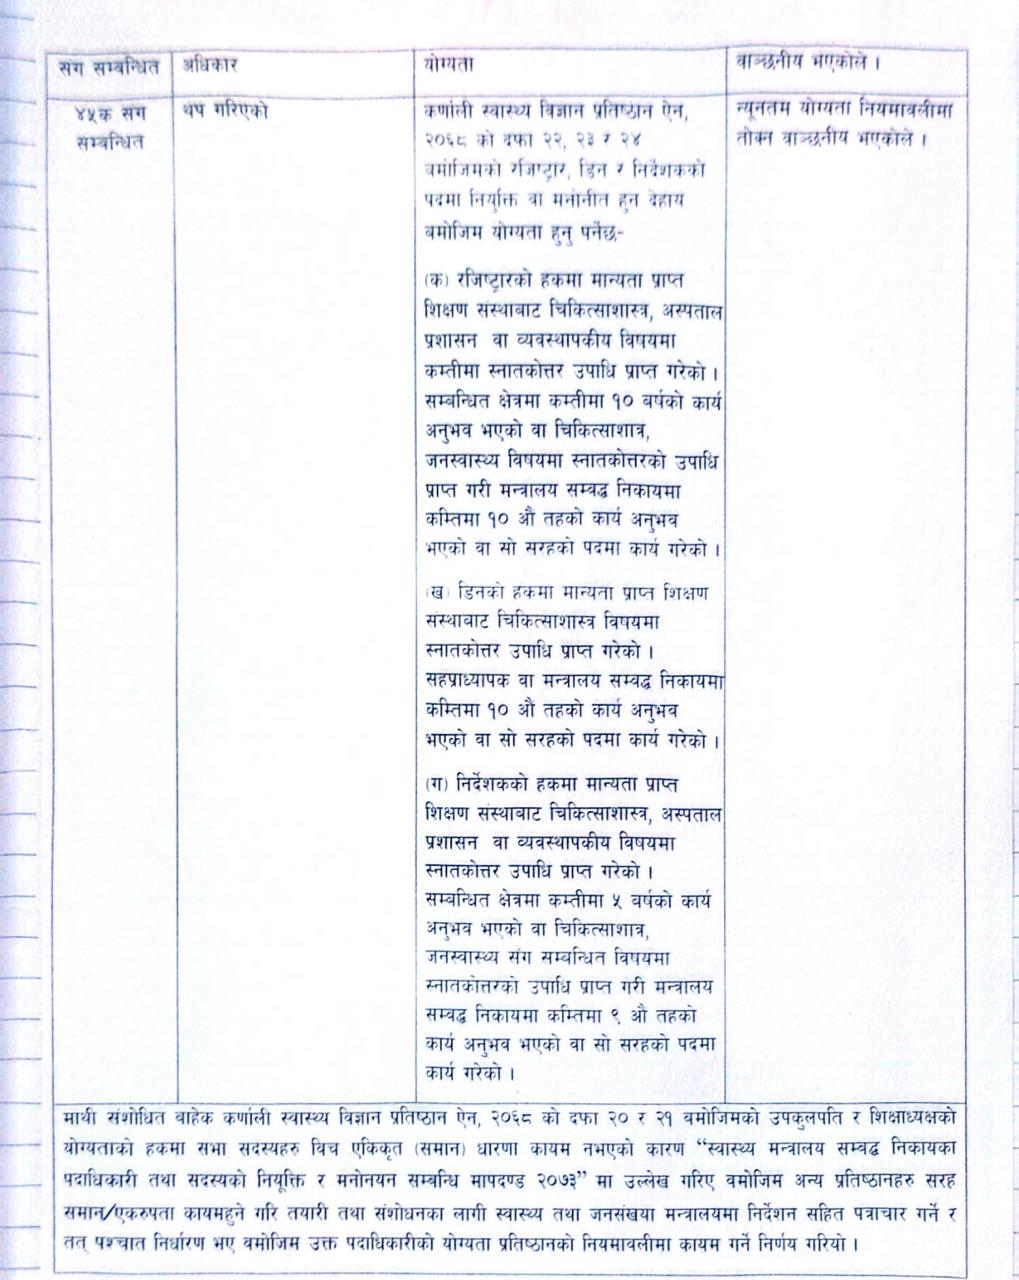 संग सम्बन्धित
अधिकार
योग्यता
वाञ्छनीय भएकोले ।
४५क संग
सम्बन्धित
थप गरिएको
कर्णाली स्वास्थ्य विज्ञान प्रतिष्ठान ऐन,
२०६८ को दफा २२, २३ र २४
बमोजिमको रजिष्ट्रार, डिन र निर्देशकको
पदमा नियुक्ति वा मनोनीत हुन देहाय
बमोजिम योग्यता हुनु पर्नेछ-
(क) रजिष्ट्रारको हकमा मान्यता प्राप्त
शिक्षण संस्थाबाट चिकित्साशास्त्र, अस्पताल
प्रशासन वा व्यवस्थापकीय विषयमा
कम्तीमा स्नातकोत्तर उपाधि प्राप्त गरेको ।
सम्बन्धित क्षेत्रमा कम्तीमा १० बर्षको कार्य
अनुभव भएको वा चिकित्साशात्र,
जनस्वास्थ्य विषयमा स्नातकोत्तरको उपाधि
प्राप्त गरी मन्त्रालय सम्वद्ध निकायमा
कम्तिमा १० औं तहको कार्य अनुभव
भएको वा सो सरहको पदमा कार्य गरेको ।
(ख) डिनको हकमा मान्यता प्राप्त शिक्षण
संस्थाबाट चिकित्साशास्त्र विषयमा
स्नातकोत्तर उपाधि प्राप्त गरेको ।
सहप्राध्यापक वा मन्त्रालय सम्वद्ध निकायमा
कम्तिमा १० औं तहको कार्य अनुभव
भएको वा सो सरहको पदमा कार्य गरेको ।
(ग) निर्देशकको हकमा मान्यता प्राप्त
शिक्षण संस्थाबाट चिकित्साशास्त्र, अस्पताल
प्रशासन वा व्यवस्थापकीय विषयमा
स्नातकोत्तर उपाधि प्राप्त गरेको ।
सम्बन्धित क्षेत्रमा कम्तीमा ५ वर्षको कार्य
अनुभव भएको वा चिकित्साशात्र,
जनस्वास्थ्य संग सम्बन्धित विषयमा
स्नातकोत्तरको उपाधि प्राप्त गरी मन्त्रालय
सम्वद्ध निकायमा कम्तिमा ९ औ तहको
कार्य अनुभव भएको वा सो सरहको पदमा
कार्य गरेको ।
न्यूनतम योग्यता नियमावलीमा
तोक्न वाञ्छनीय भएकोले ।
माथी संशोधित बाहेक कर्णाली स्वास्थ्य विज्ञान प्रतिष्ठान ऐन, २०६८ को दफा २० र २१ बमोजिमको उपकुलपति र शिक्षाध्यक्षको
योग्यताको हकमा सभा सदस्यहरु विच एकिकृत (समान) धारणा कायम नभएको कारण “स्वास्थ्य मन्त्रालय सम्वद्ध निकायका
पदाधिकारी तथा सदस्यको नियूक्ति र मनोनयन सम्बन्धि मापदण्ड २०७३” मा उल्लेख गरिए वमोजिम अन्य प्रतिष्ठानहरु सरह
समान/एकरुपता कायमहुने गरि तयारी तथा संशोधनका लागी स्वास्थ्य तथा जनसंखया मन्त्रालयमा निर्देशन सहित पत्राचार गर्ने र
तत् पश्चात निर्धारण भए वमोजिम उक्त पदाधिकारीको योग्यता प्रतिष्ठानको नियमावलीमा कायम गर्ने निर्णय गरियो ।